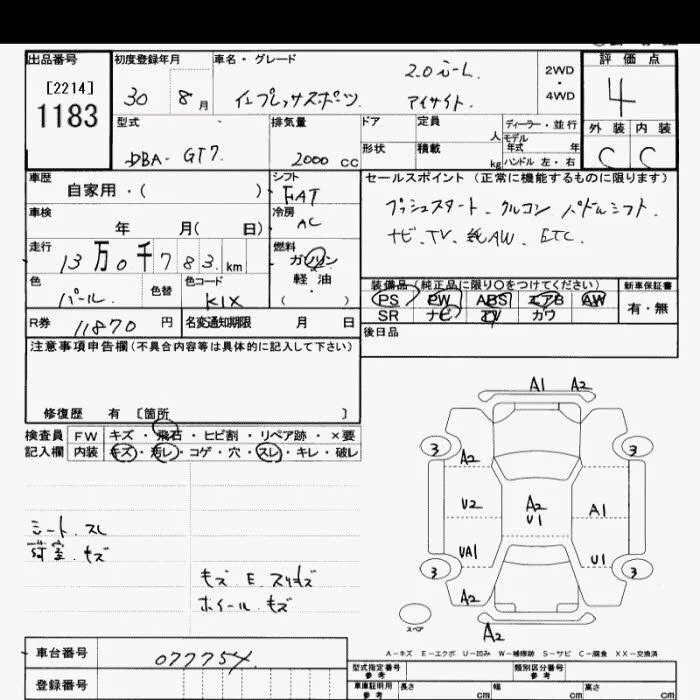 出品番号 初度登録年月 車名・グレード 評価点
[2214]
1183
30 8 月 インプレッサスポーツ 2.0i-L アイサイト. 2WD・4WD 4
型式 排気量 ドア 定員 人 ディーラー・並行 外装 内装
DBA- GT7 2000 cc 形状 積載 kg モデル年式 年 ハンドル 左・右 C C
車歴 自家用・( ) シフト FAT セールスポイント (正常に機能するものに限ります)
車検 年 月( 日) 冷房 AC プッシュスタート、クルコン パドルシフト.
ナビ、TV、純AW、ETC.
走行 13万0千783 km 燃料 ガソリン 軽油・( )
色 パール. 色替 色コード K1X
装備品(純正品に限り○をつけてください) 新車保証書
PS PW ABS エアB AW 有・無
SR ナビ TV カワ
R券 11870 円 名変通知期限 月 日 後日品
注意事項申告欄(不具合内容等は具体的に記入して下さい)
修復歴 有 〔箇所 〕
検査員 FW キズ・飛石・ヒビ割・リペア跡・×要
記入欄 内装 キズ・汚レ・コゲ・穴・スレ・キレ・破レ
シート. スレ
荷室. キズ
キズ E スリキズ
ホイール. キズ
A1 A2
3 3
A2
U2 A2 U1 A1
UA1 U1
3 3
A2
スペア
A2
A-キズ E-エクボ U-凹み W-補修跡 S-サビ C-腐食 XX-交換済
車台番号 077754
登録番号
型式指定番号 参考 類別区分番号 参考
車庫証明用 参考 長さ cm 幅 cm 高さ cm